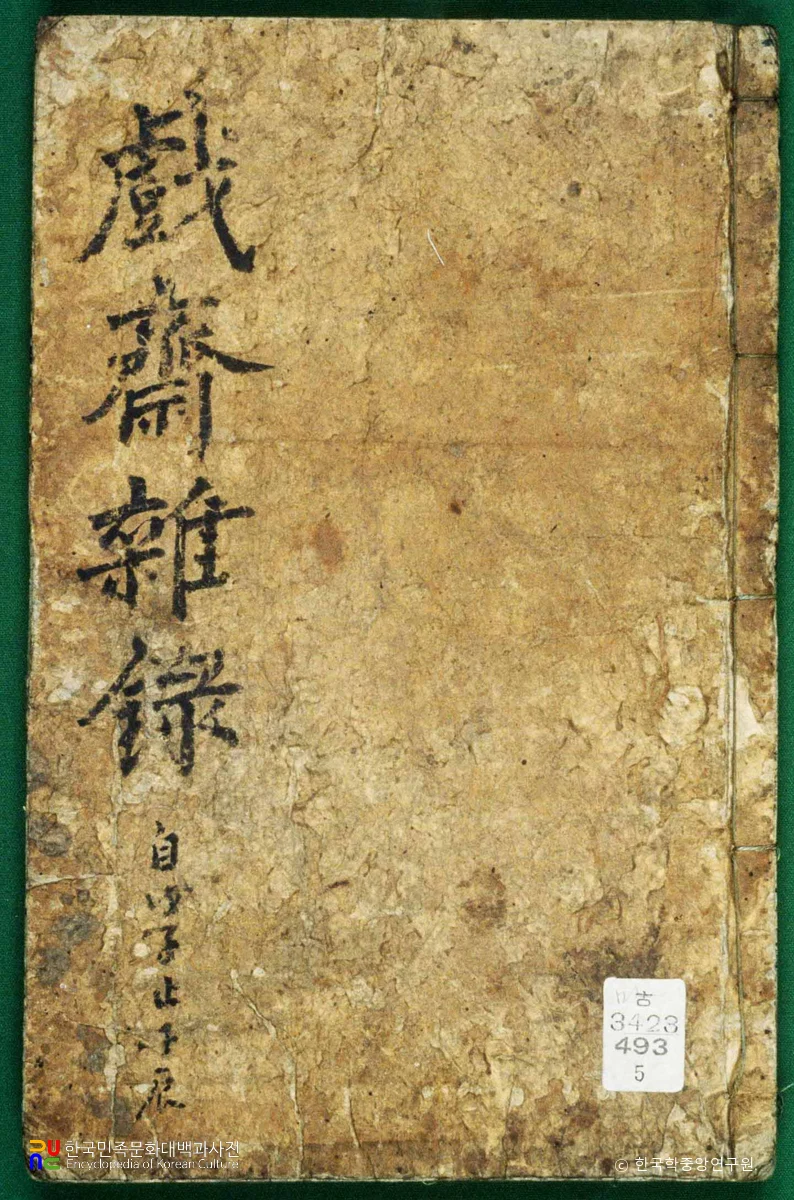 戲齋雜錄
自 子止 辰
古
3423
493
5
한국민족문화대백과사전
Encyclopedia of Korean Culture
© 한국학중앙연구원